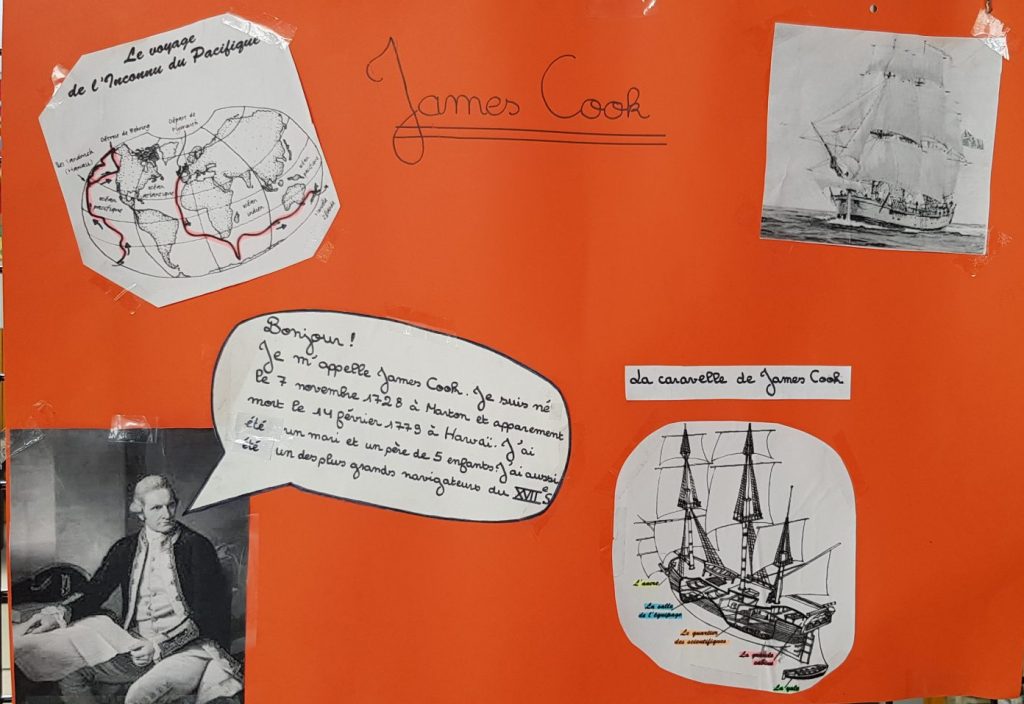 Le voyage
de l'Inconnu du Pacifique
Détroit de Behring
Départ de
Plymouth
Îles Sandwich
(Hawaii)
océan
pacifique
océan
atlantique
océan
indien
James Cook
Bonjour !
Je m'appelle James Cook. Je suis né
le 7 novembre 1728 à Marton et apparement
mort le 14 février 1779 à Hawaï. J'ai
été un mari et un père de 5 enfants. J'ai aussi
été un des plus grands navigateurs du XVII e s
La caravelle de James Cook
L'ancre
La salle
de l'équipage
Le quartier
des scientifiques
La grande
cabine
La yole